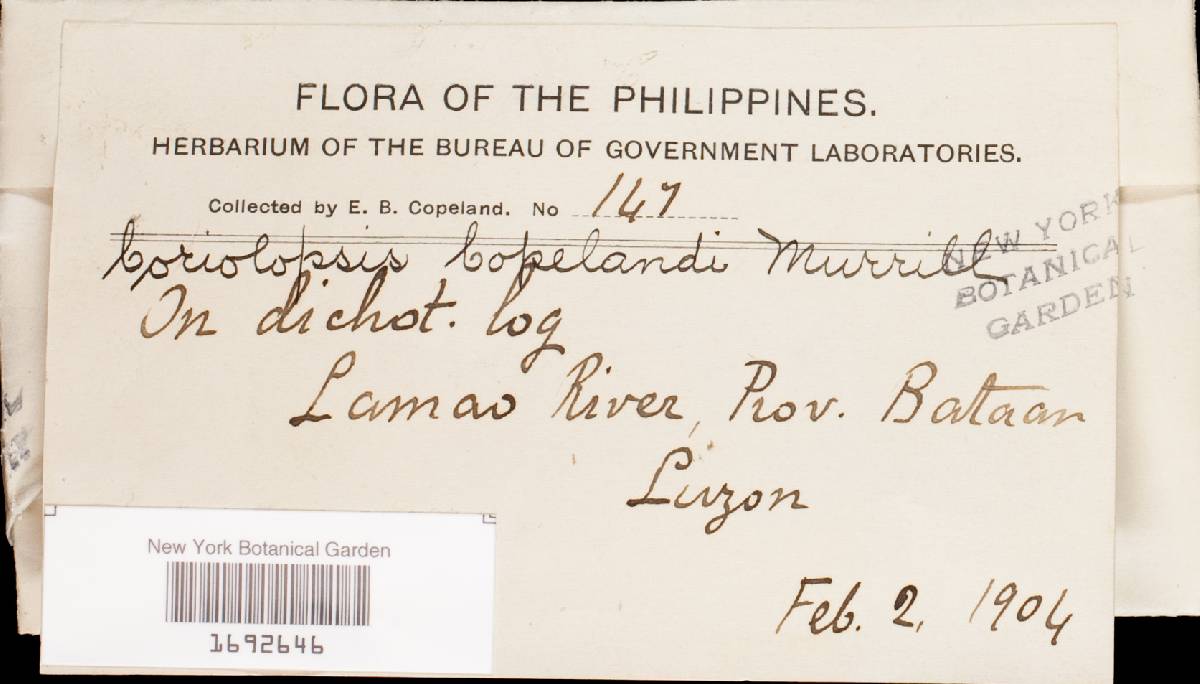 FLORA OF THE PHILIPPINES.
HERBARIUM OF THE BUREAU OF GOVERNMENT LABORATORIES.
Collected by E. B. Copeland. No 147
Coriolopsis Copelandi Murrill
NEW YORK
BOTANICAL
GARDEN
On dichot. log
Lamao River, Prov. Bataan
Luzon
Feb. 2, 1904
New York Botanical Garden
1692646